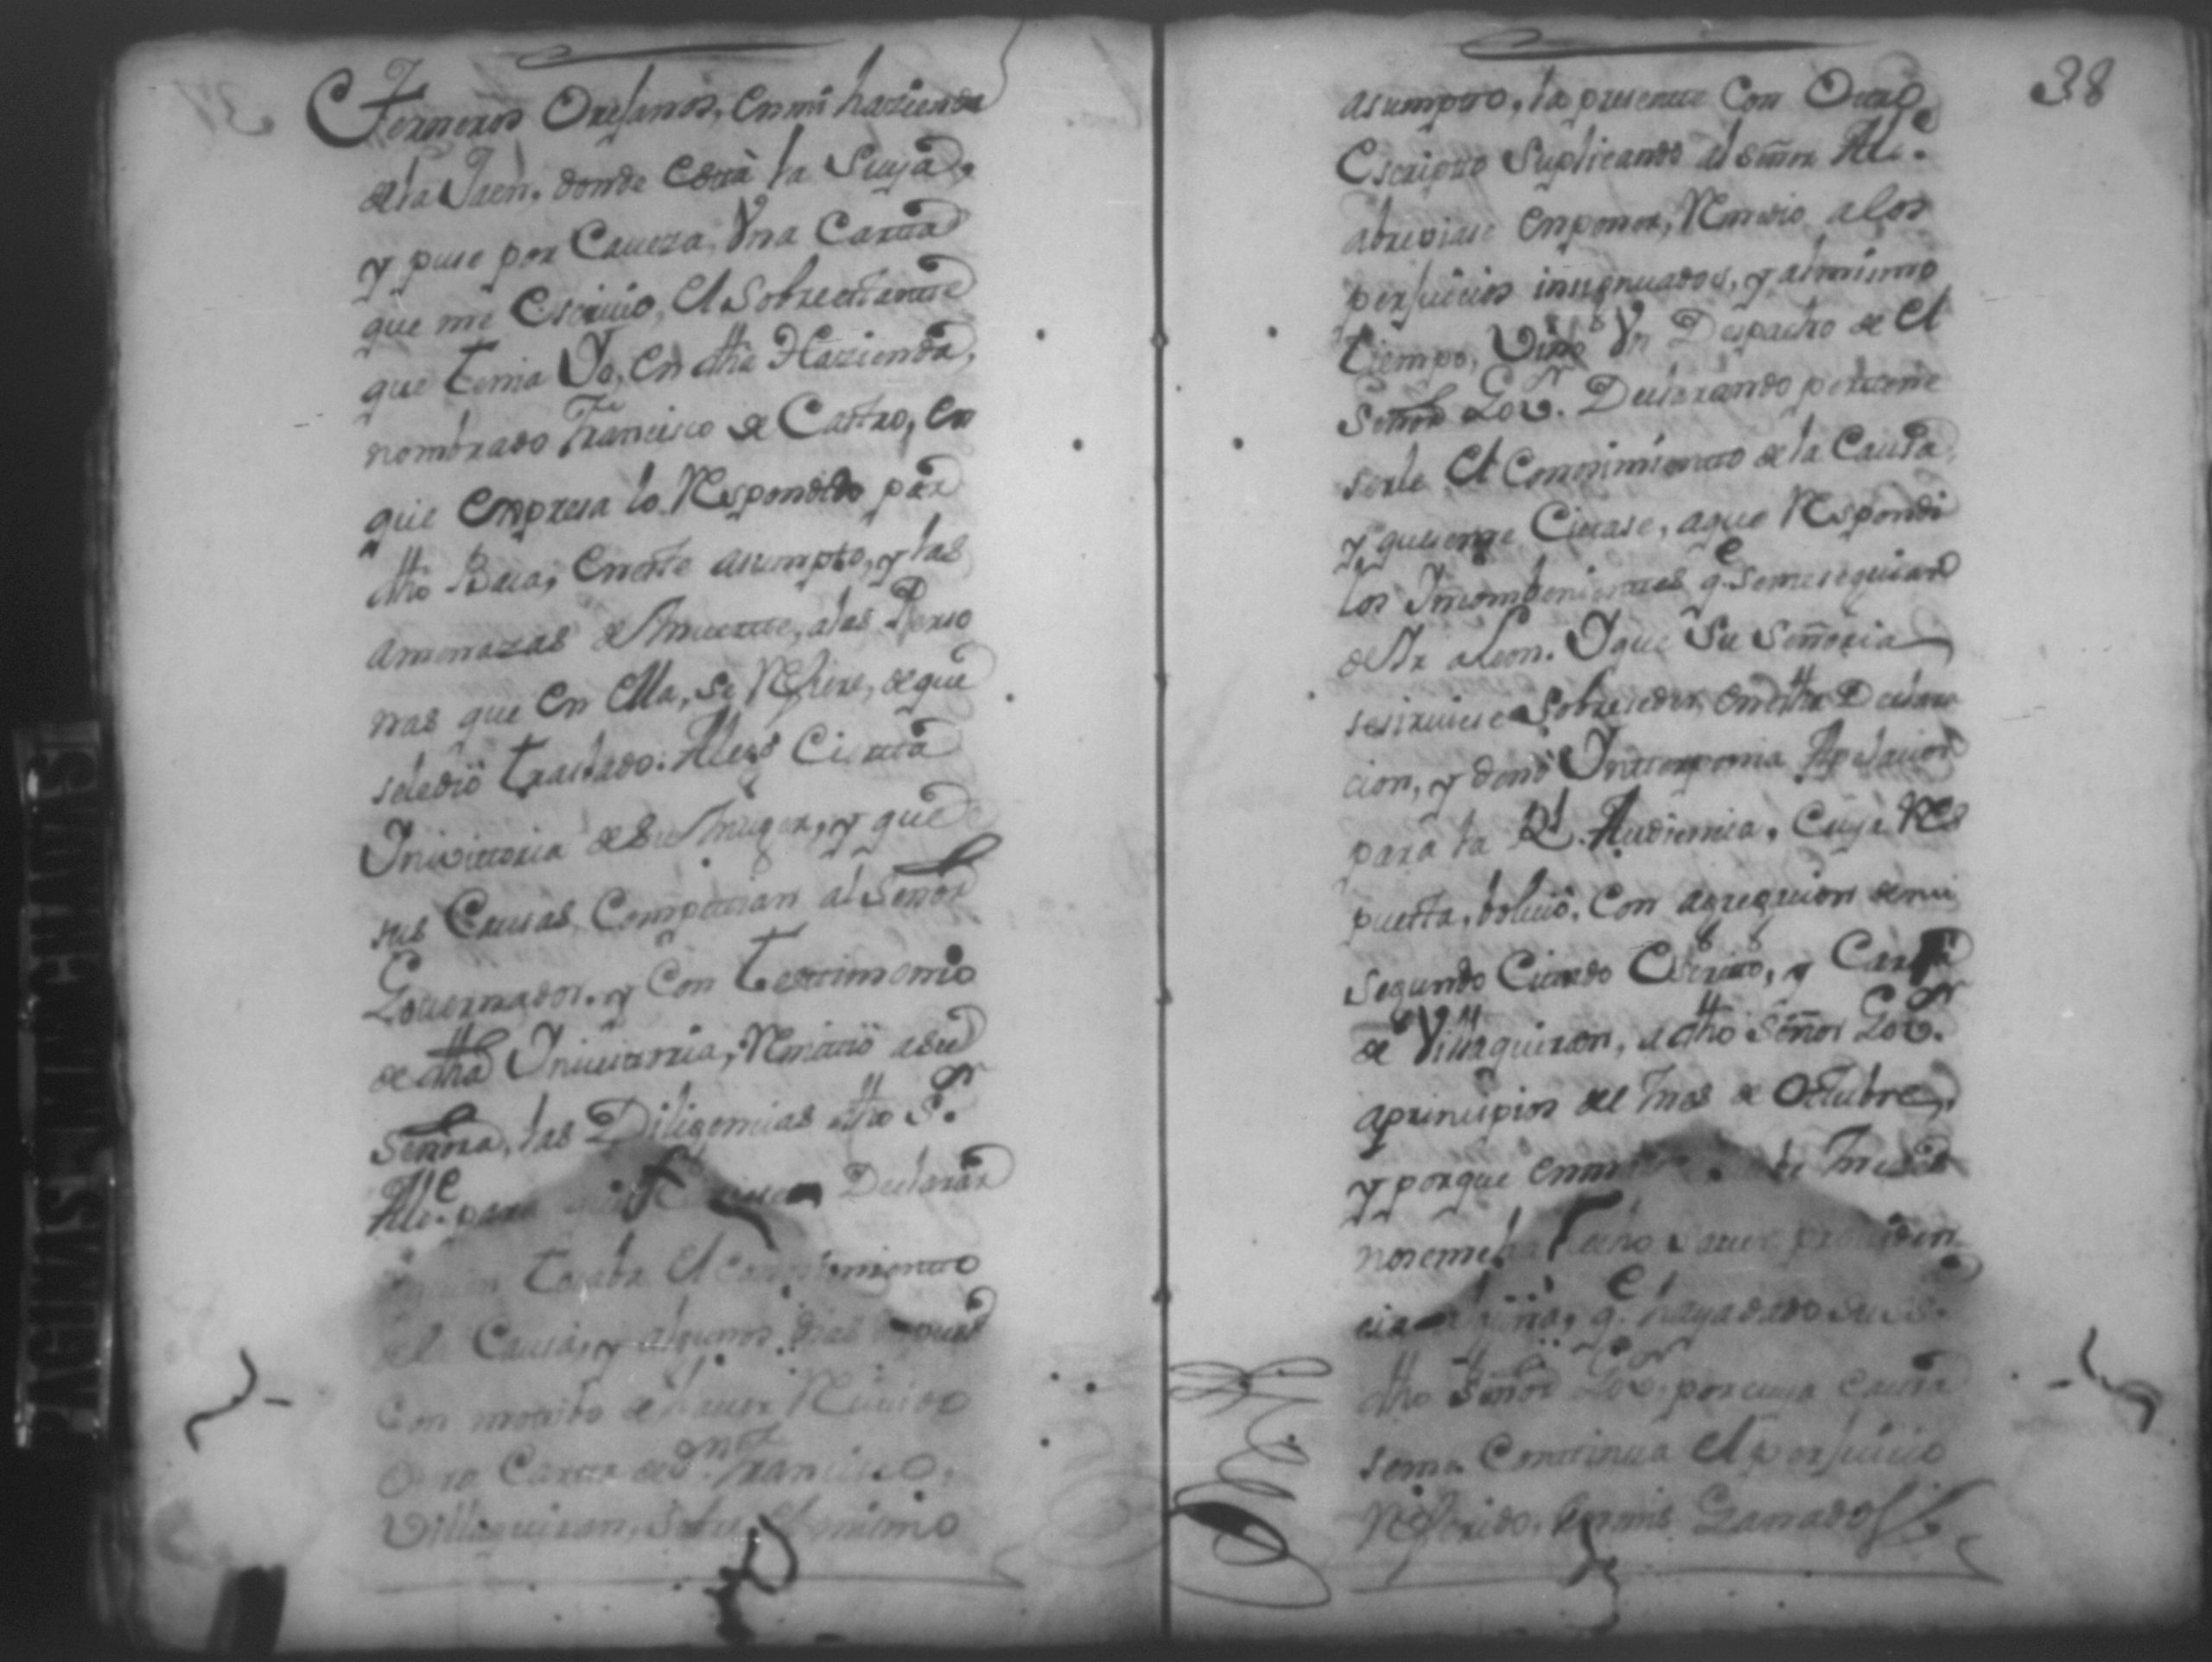 Terneros Orejanos, en mi hazienda
de la Jaen, donde està la Suya,
y puse por Caveza, Vna Carta
que me Escrivio, el Sobreestante
que tenia Yo, en dha Hazienda,
nombrado Francisco de Castro, en
que expresa lo Respondido por
dho Baca, en este asumpto, y las
amenazas de muerte, a las Perso
nas que en ella, se Refiere, de que
sele diò traslado. Alegò Cierta
Inivitoria de su Muger, y que
sus Causas Competian al Señor
Governador. y Con testimonio
de dha Inivitoria, Remitiò a su
Señoria, las Diligencias dho S.r
Alc.e para Declarar
tocaba el conosimiento
de la Causa, y algunos dias despues
Con motibo de haver Recivido
Otra Carta de Francisco
Villaquiran, sobre el mismo
38
asumpto, la presente Con Otro
Escripto Suplicando al Señor Alc.e
abreviase en poner, Remedio a los
perjuicios insignuados, y al mismo
tiempo, Vino Vn Despacho de el
Señor Gov.or Declarando pertene
serle el Conosimiento de la Causa,
y que se me Citase, a que Respondi
los Incombenientes q.e se me seguian
de Ir a Leon. Y que Su Señoria
se sirviese Sobreseder, en dha Declara
cion, y donde Interponia Apelacion
para la R.l Audiencia. Cuya Res
puesta, bolviò, Con agregacion de mi
segundo Citado Escrito, y Carta
de Villaquiran, a dho Señor Gov.or
a principios del mes de Octubre,
y porque
no se me ha hecho saver providen
cia alguna, q.e haya dado
dho Señor Gov.or por cuya Causa
se me Continua el perjuicio
Referido, en mis Ganados
PAGINAS MANCHADAS